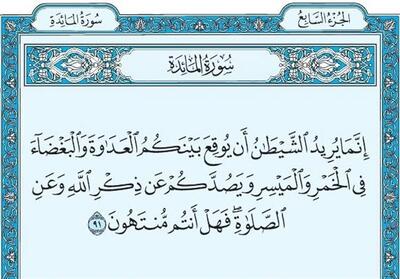 الجزء السابع
سورة المائدة
سورة المائدة
إِنَّمَا يُرِيدُ ٱلشَّيْطَـٰنُ أَن يُوقِعَ بَيْنَكُمُ ٱلْعَدَٰوَةَ وَٱلْبَغْضَآءَ
فِى ٱلْخَمْرِ وَٱلْمَيْسِرِ وَيَصُدَّكُمْ عَن ذِكْرِ ٱللَّهِ وَعَنِ
ٱلصَّلَوٰةِ ۖ فَهَلْ أَنتُم مُّنتَهُونَ ٩١